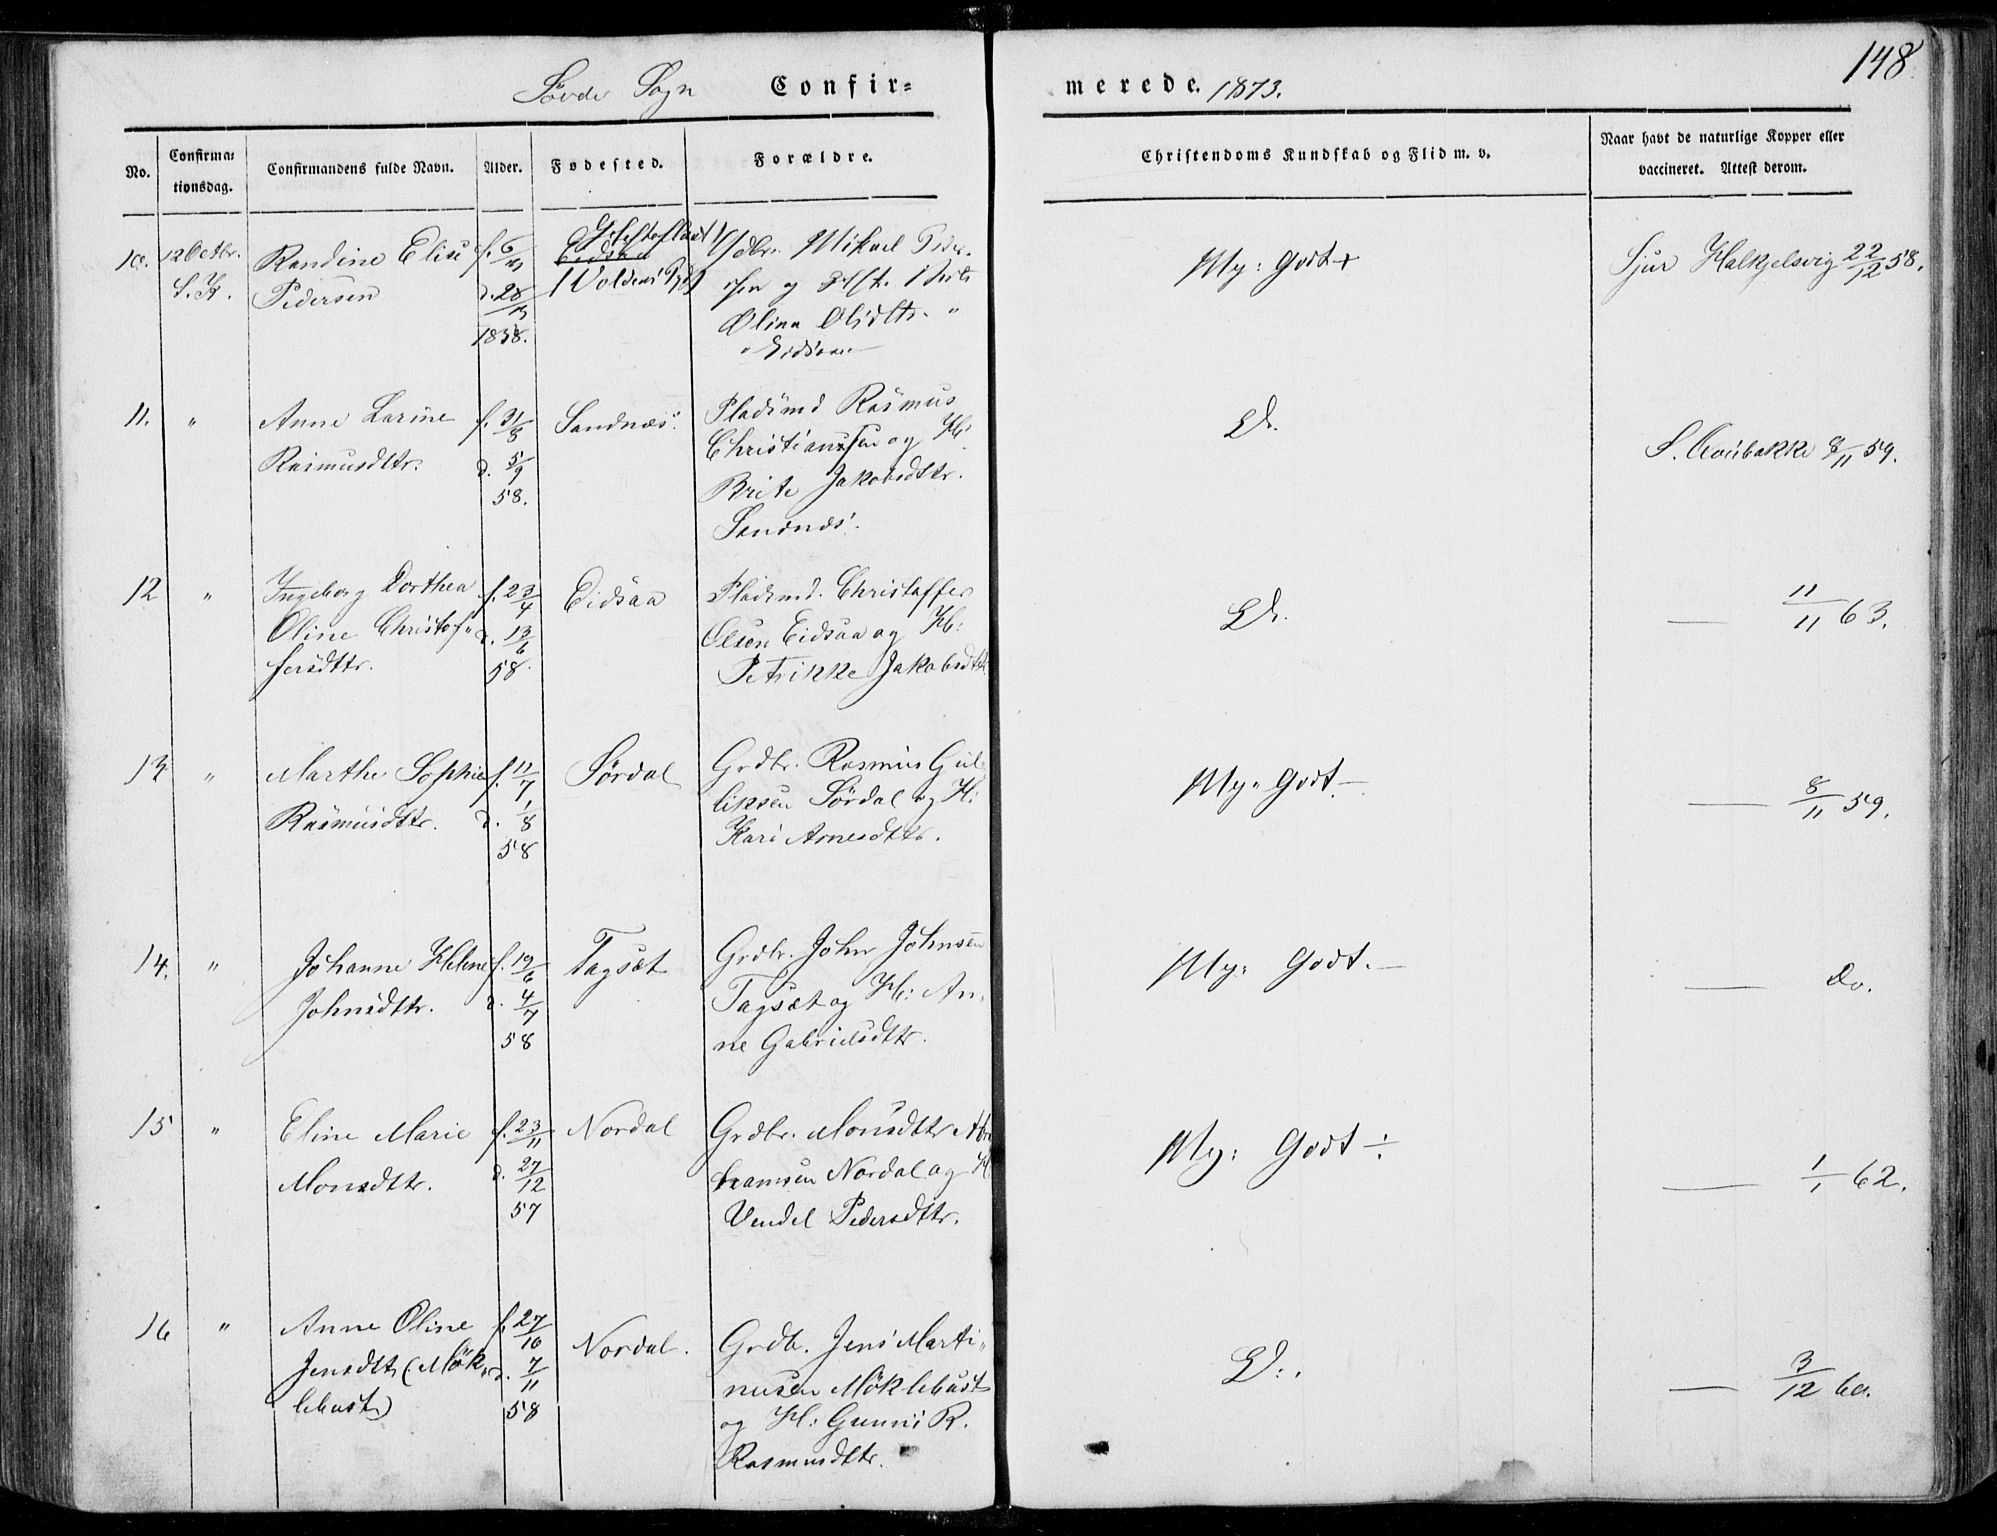 148
Søvde Sogn Confir=
merede. 1873.
No.
Confirma=
tionsdag.
Confirmandens fulde Navn.
Alder.
Fødested.
Forældre.
Christendoms Kundskab og Flid m. v.
Naar havt de naturlige Kopper eller
vaccineret. Attest derom.
10. 12 Octbr.
S. K.
Randine Elise
Pedersen
f. 6
d. 28
1858.
Eidsaa
(Voldens Pgd)
Mikael Peder-
sen og
Olina Olsdttr. "
" Eidsaae
My: Godt +
Sjur Halkjelsvig 22/12 58.
11. "
Anne Larine
Rasmusdttr.
f. 31/8
d. 5/9
58.
Sandnæs.
Pladsmd Rasmus
Christianssen og H:
Brite Jakobsdttr.
Sandnæs.
D.
S. Aarsbakke 8/11 59.
12 "
Ingeborg Dorthea
Oline Christof=
fersdttr.
f. 23/4
d. 13/6
58.
Eidsaa
Pladsmd. Christoffer
Olsen Eidsaa og H:
Petrikke Jakobsdttr
D.
— 11/11 63.
13 "
Marthe Sophie
Rasmusdttr.
f. 11/7
d. 1/8
58
Sørdal
Grdbr. Rasmus Gul=
liksen Sørdal og H:
Kari Arnesdttr.
My: Godt —
— 8/11 59.
14. "
Johanne Helene
Johnsdttr.
f. 19/6
d. 4/7
58
Tagsæt
Grdbr. John Johnsen
Tagsæt og H: An-
ne Gabrielsdttr.
My: Godt. —
— Do.
15 "
Eline Marie
Monsdttr.
f. 23/11
d. 27/12
57
Nordal
Grdbr. Monsdttr Abra
hamsen Nordal og H
Vendel Pedersdttr.
My: Godt ÷
— 1/1 62.
16 "
Anne Oline
Jensdtt (Møk=
lebust)
f. 27/10
d. 7/11
58
Nordal.
Grdb. Jens Marti=
nusen Møklebust
og H: Gunni R.
Rasmusdttr.
D.
— 3/12 60.